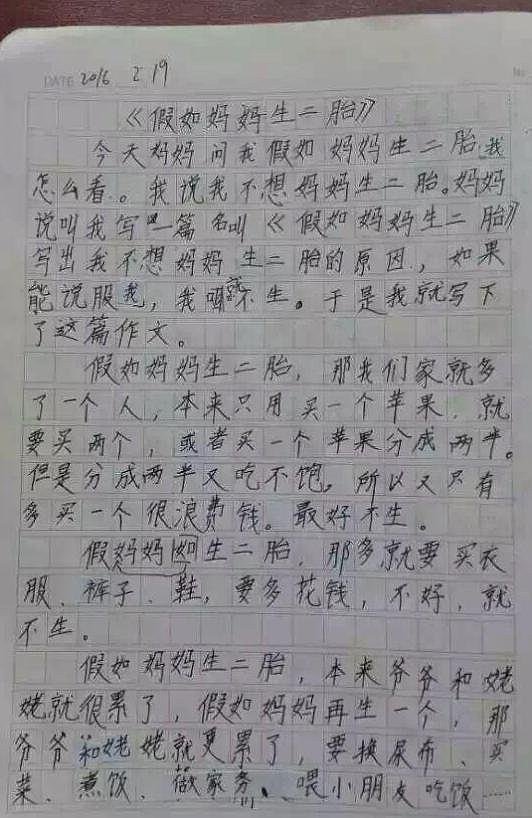 DATE 2016 2 19
《假如妈妈生二胎》
今天妈妈问我假如妈妈生二胎,我
怎么看。我说我不想妈妈生二胎。妈妈
说叫我写一篇名叫《假如妈妈生二胎》
写出我不想妈妈生二胎的原因,如果
能说服我,我就不生。于是我就写下
了这篇作文。
假如妈妈生二胎,那我们家就多
了一个人,本来只用买一个苹果,就
要买两个,或者买一个苹果分成两半。
但是分成两半又吃不饱,所以又只有
多买一个很浪费钱。最好不生。
假妈妈如生二胎,那多就要买衣
服、裤子、鞋,要多花钱,不好,就
不生。
假如妈妈生二胎,本来爷爷和姥
姥就很累了,假如妈妈再生一个,那
爷爷和姥姥就更累了,要换尿布、买
菜、煮饭、做家务、喂小朋友吃饭……